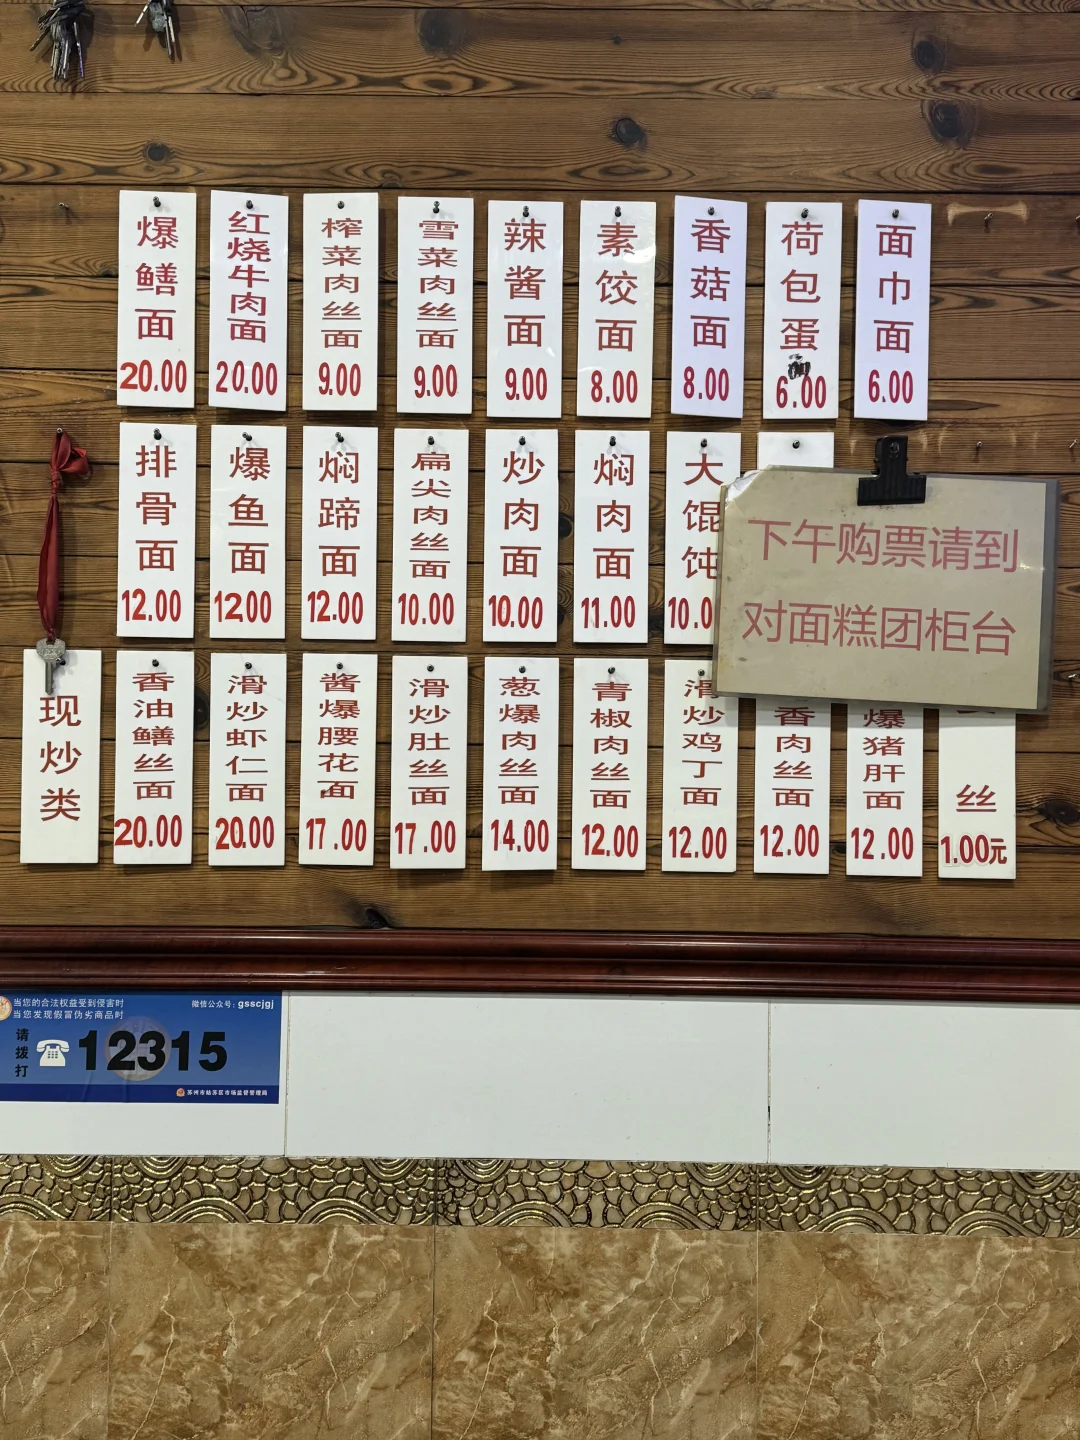 爆鳝面
20.00
红烧牛肉面
20.00
榨菜肉丝面
9.00
雪菜肉丝面
9.00
辣酱面
9.00
素饺面
8.00
香菇面
8.00
荷包蛋面
6.00
面巾面
6.00
排骨面
12.00
爆鱼面
12.00
焖蹄面
12.00
扁尖肉丝面
10.00
炒肉面
10.00
焖肉面
11.00
大馄饨
10.0
下午购票请到
对面糕团柜台
现炒类
香油鳝丝面
20.00
滑炒虾仁面
20.00
酱爆腰花面
17.00
滑炒肚丝面
17.00
葱爆肉丝面
14.00
青椒肉丝面
12.00
滑炒鸡丁面
12.00
香肉丝面
12.00
爆猪肝面
12.00
丝
1.00元
当您的合法权益受到侵害时
当您发现假冒伪劣商品时
微信公众号：gsscjgj
请拨打
12315
苏州市姑苏区市场监督管理局